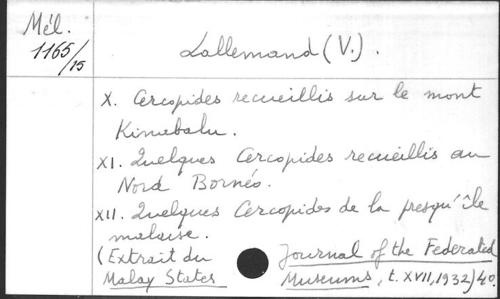 Mél.
1165/15
Lallemand (V.).
X. Cercopides recueillis sur le mont
Kinebalu.
XI. Quelques Cercopides recueillis au
Nord Bornéo.
XII. Quelques Cercopides de la presqu'île
malaise.
(Extrait du Journal of the Federated
Malay States Museums, t. XVII, 1932) 4º.